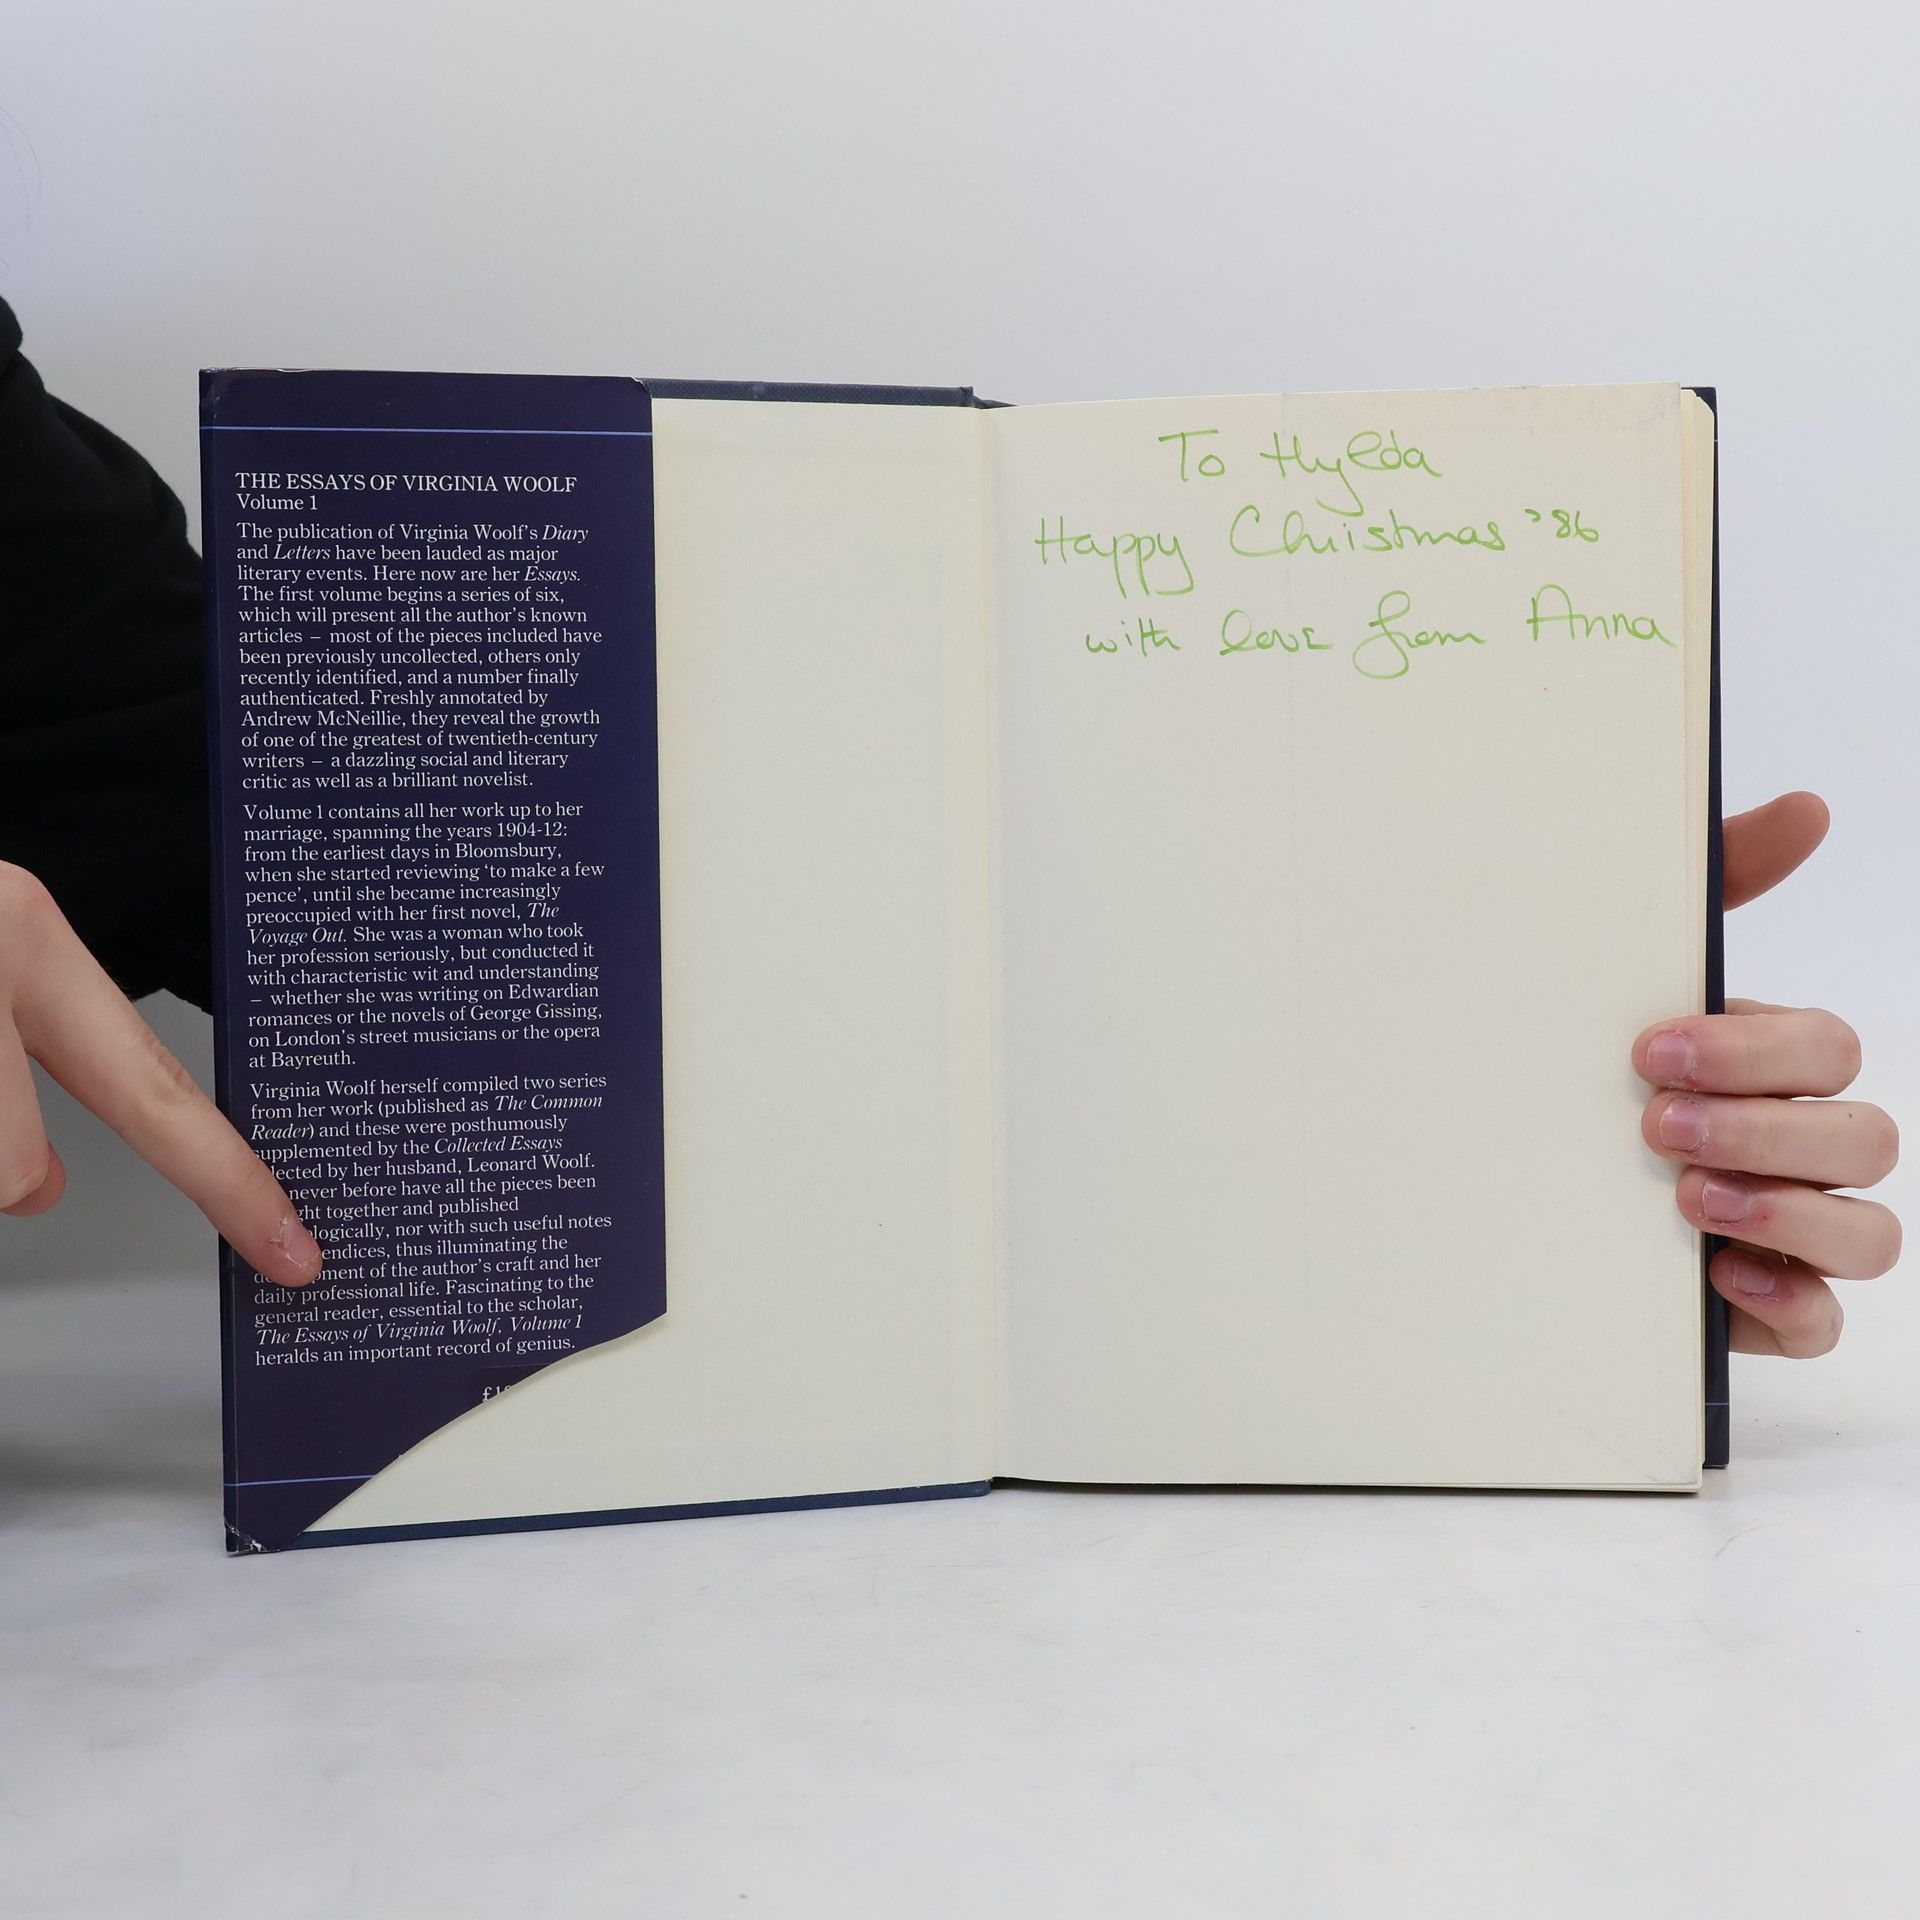 THE ESSAYS OF VIRGINIA WOOLF
Volume 1
The publication of Virginia Woolf's Diary
and Letters have been lauded as major
literary events. Here now are her Essays.
The first volume begins a series of six,
which will present all the author's known
articles – most of the pieces included have
been previously uncollected, others only
recently identified, and a number finally
authenticated. Freshly annotated by
Andrew McNeillie, they reveal the growth
of one of the greatest of twentieth-century
writers – a dazzling social and literary
critic as well as a brilliant novelist.
Volume 1 contains all her work up to her
marriage, spanning the years 1904-12:
from the earliest days in Bloomsbury,
when she started reviewing ‘to make a few
pence’, until she became increasingly
preoccupied with her first novel, The
Voyage Out. She was a woman who took
her profession seriously, but conducted it
with characteristic wit and understanding
– whether she was writing on Edwardian
romances or the novels of George Gissing,
on London's street musicians or the opera
at Bayreuth.
Virginia Woolf herself compiled two series
from her work (published as The Common
Reader) and these were posthumously
supplemented by the Collected Essays
by her husband, Leonard Woolf.
never before have all the pieces been
together and published
nor with such useful notes
thus illuminating the
of the author's craft and her
daily professional life. Fascinating to the
general reader, essential to the scholar,
The Essays of Virginia Woolf, Volume 1
heralds an important record of genius.
To Hylda
Happy Christmas '86
with love from Anna